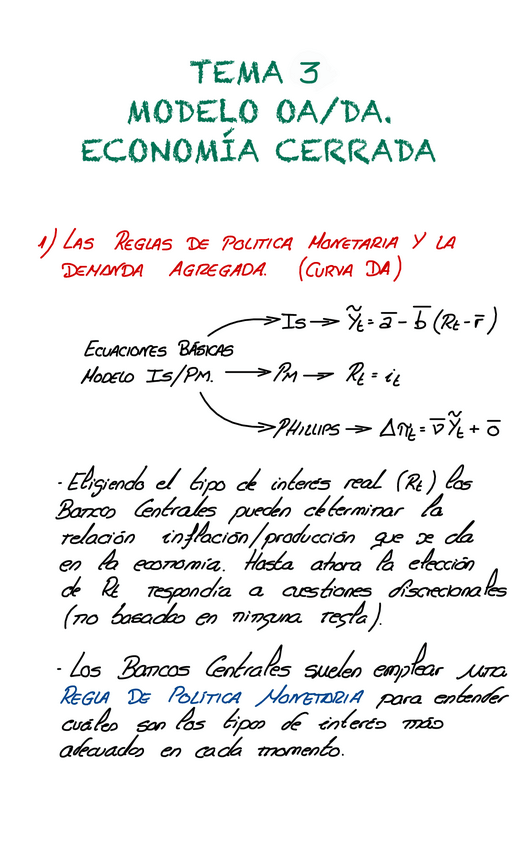 TEMA 3
MODELO OA/DA.
ECONOMÍA CERRADA
1) LAS REGLAS DE POLITICA MONETARIA Y LA
DEMANDA AGREGADA. (CURVA DA)
IS → Ỹt = a̅ - b̅ (Rt - r̅)
ECUACIONES BÁSICAS
MODELO IS/PM. → PM → Rt = it
PHILLIPS → Δπt = v̅Ỹt + o̅
· Eligiendo el tipo de interés real (Rt) los
Bancos Centrales pueden determinar la
relación inflación/producción que se da
en la economía. Hasta ahora la elección
de Rt respondía a cuestiones discrecionales
(no basadas en ninguna regla).
· Los Bancos Centrales suelen emplear una
REGLA DE POLÍTICA MONETARIA para entender
cuáles son los tipos de interés más
adecuados en cada momento.